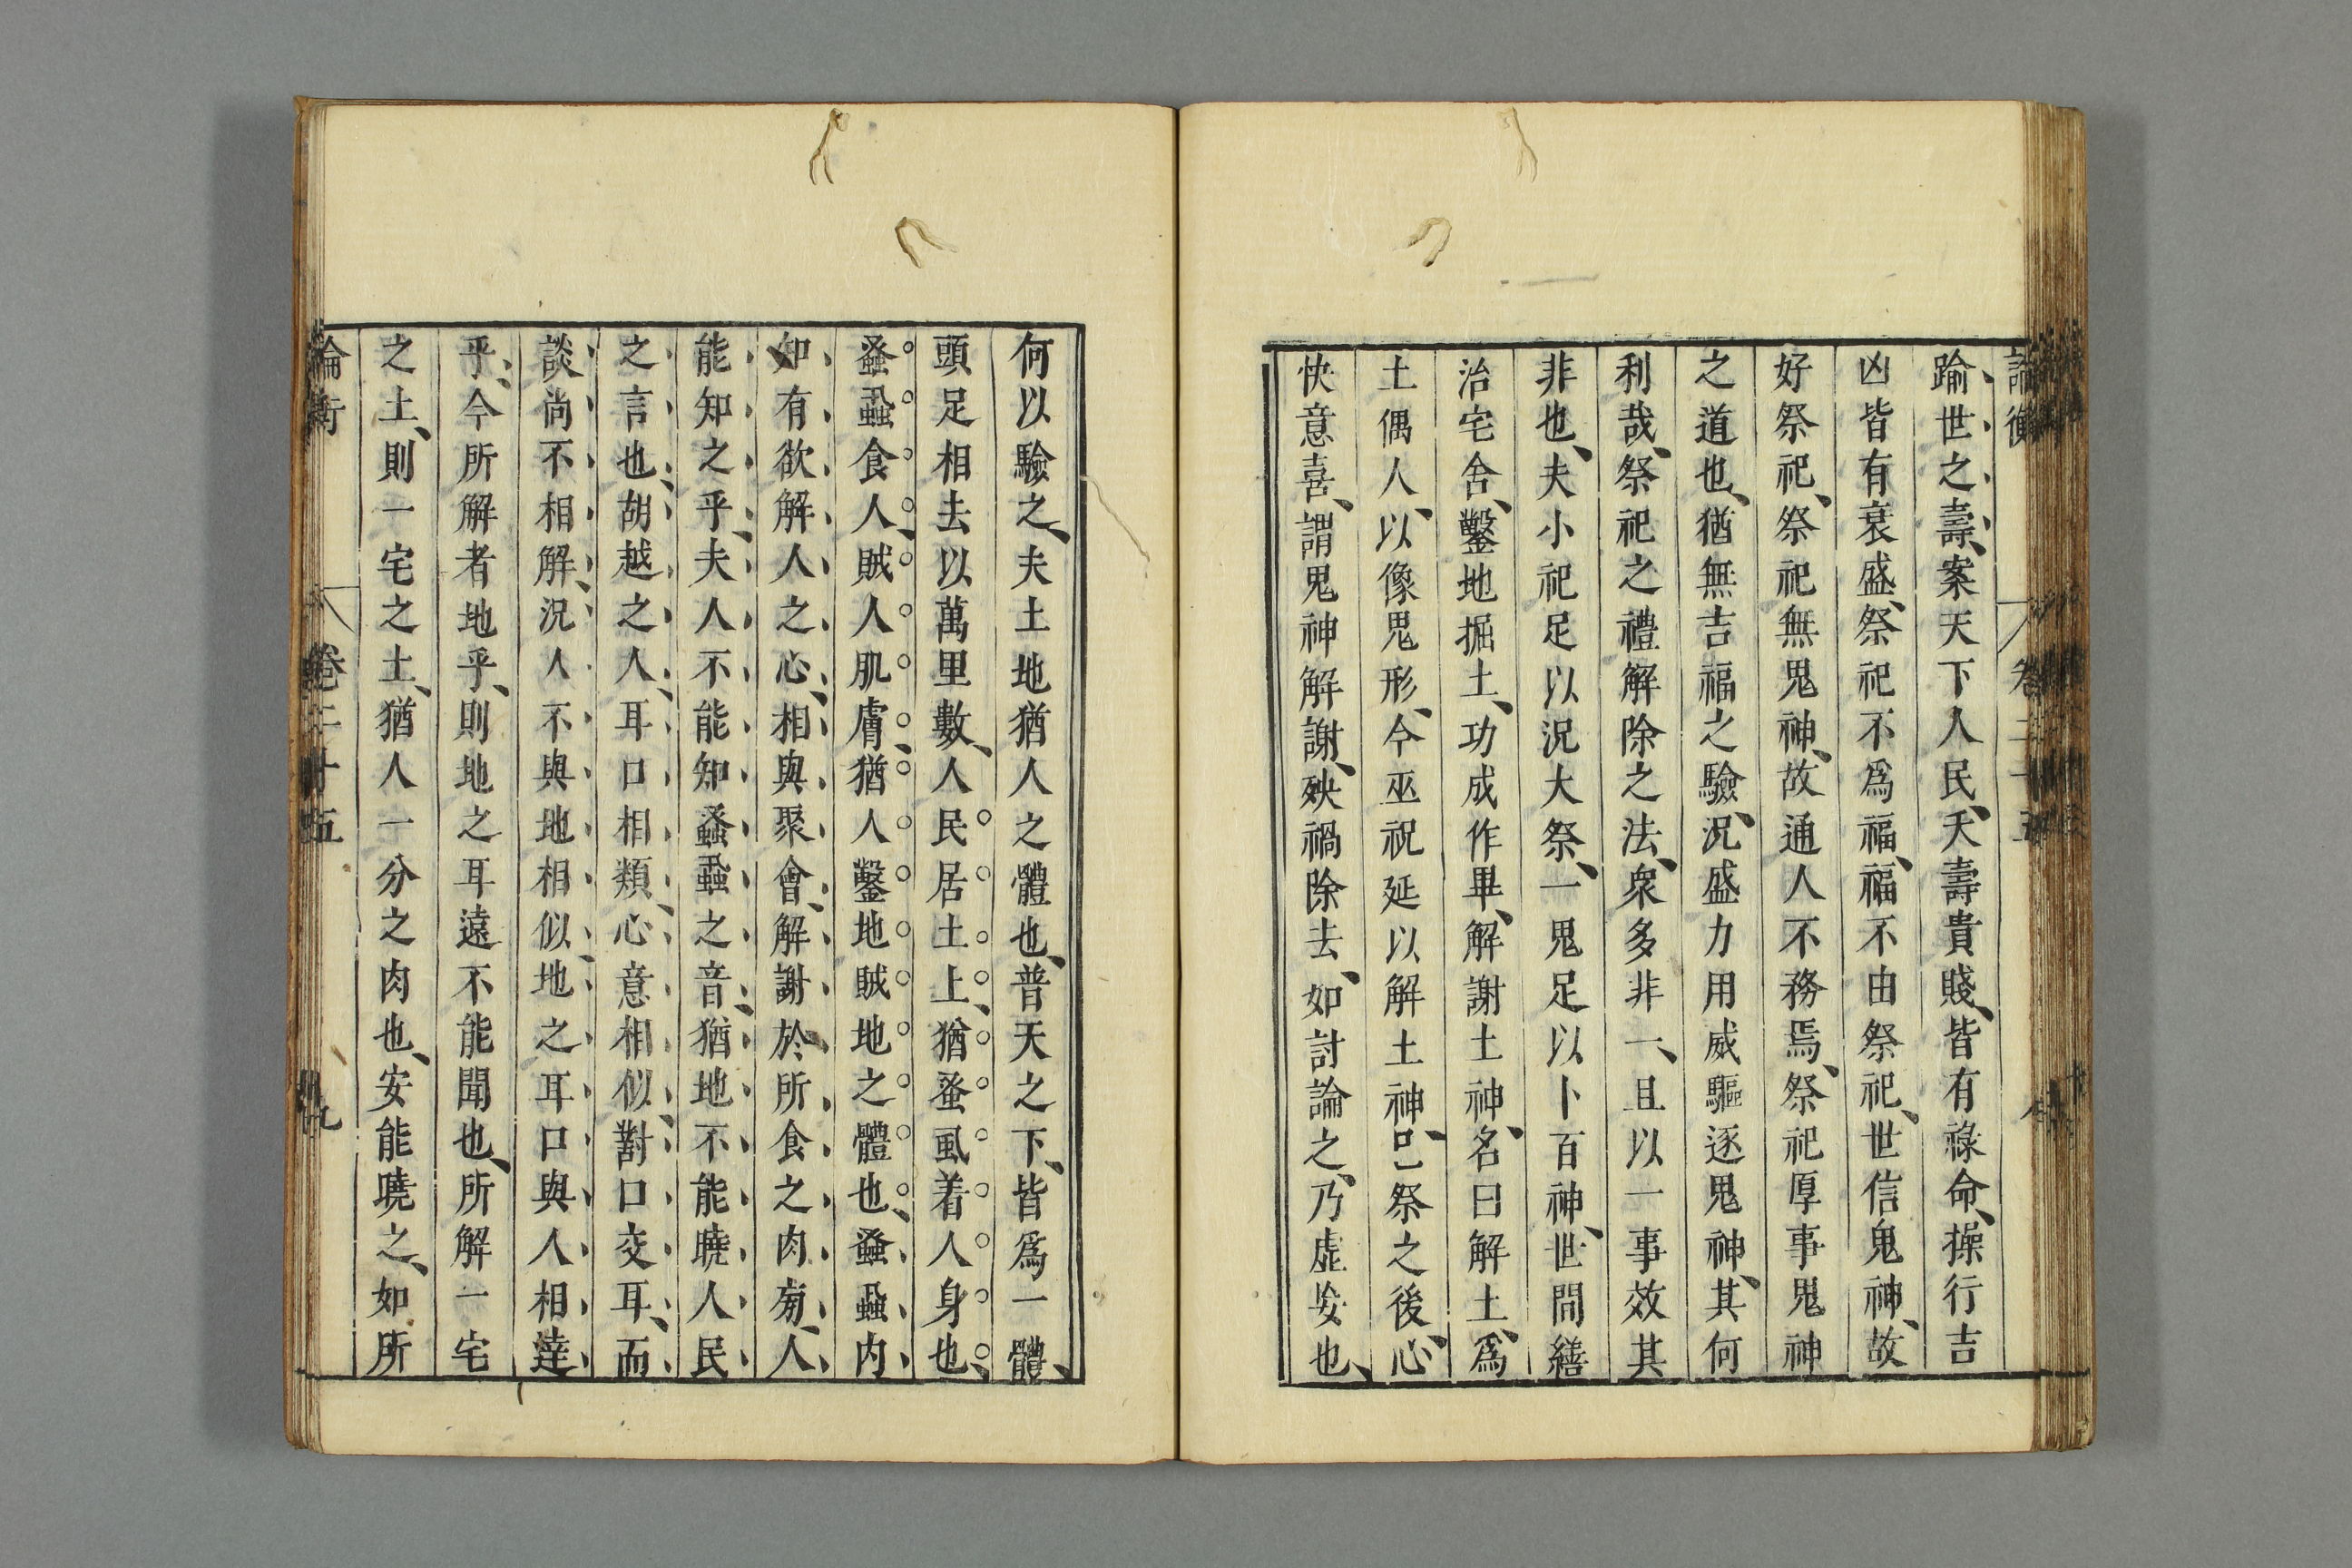 論衡 卷二十五
踰世之壽、案天下人民、夭壽貴賤、皆有祿命、操行吉
凶皆有衰盛、祭祀不爲福、福不由祭祀、世信鬼神、故
好祭祀、祭祀無鬼神、故通人不務焉、祭祀厚事鬼神
之道也、猶無吉福之驗、況盛力用威驅逐鬼神、其何
利哉、祭祀之禮解除之法、衆多非一、且以一事效其
非也、夫小祀足以況大祭、一鬼足以卜百神、世間繕
治宅舍、鑿地掘土、功成作畢、解謝土神、名曰解土、爲
土偶人、以像鬼形、令巫祝延以解土神、已祭之後、心
快意喜、謂鬼神解謝、殃禍除去、如討論之、乃虛妄也、
何以驗之、夫土地猶人之體也、普天之下、皆爲一體、
頭足相去以萬里數、人民居土上、猶蚤虱着人身也、
蚤蝨食人、賊人肌膚、猶人鑿地賊地之體也、蚤蝨內
知有欲解人之心、相與聚會、解謝於所食之肉旁、人
能知之乎、夫人不能知蚤蝨之音、猶地不能曉人民
之言也、胡越之人、耳口相類、心意相似、對口交耳、而
談尚不相解、況人不與地相似、地之耳口與人相達
乎、今所解者地乎、則地之耳遠不能聞也、所解一宅
之土、則一宅之土、猶人一分之肉也、安能曉之、如所
論衡 卷二十五 九